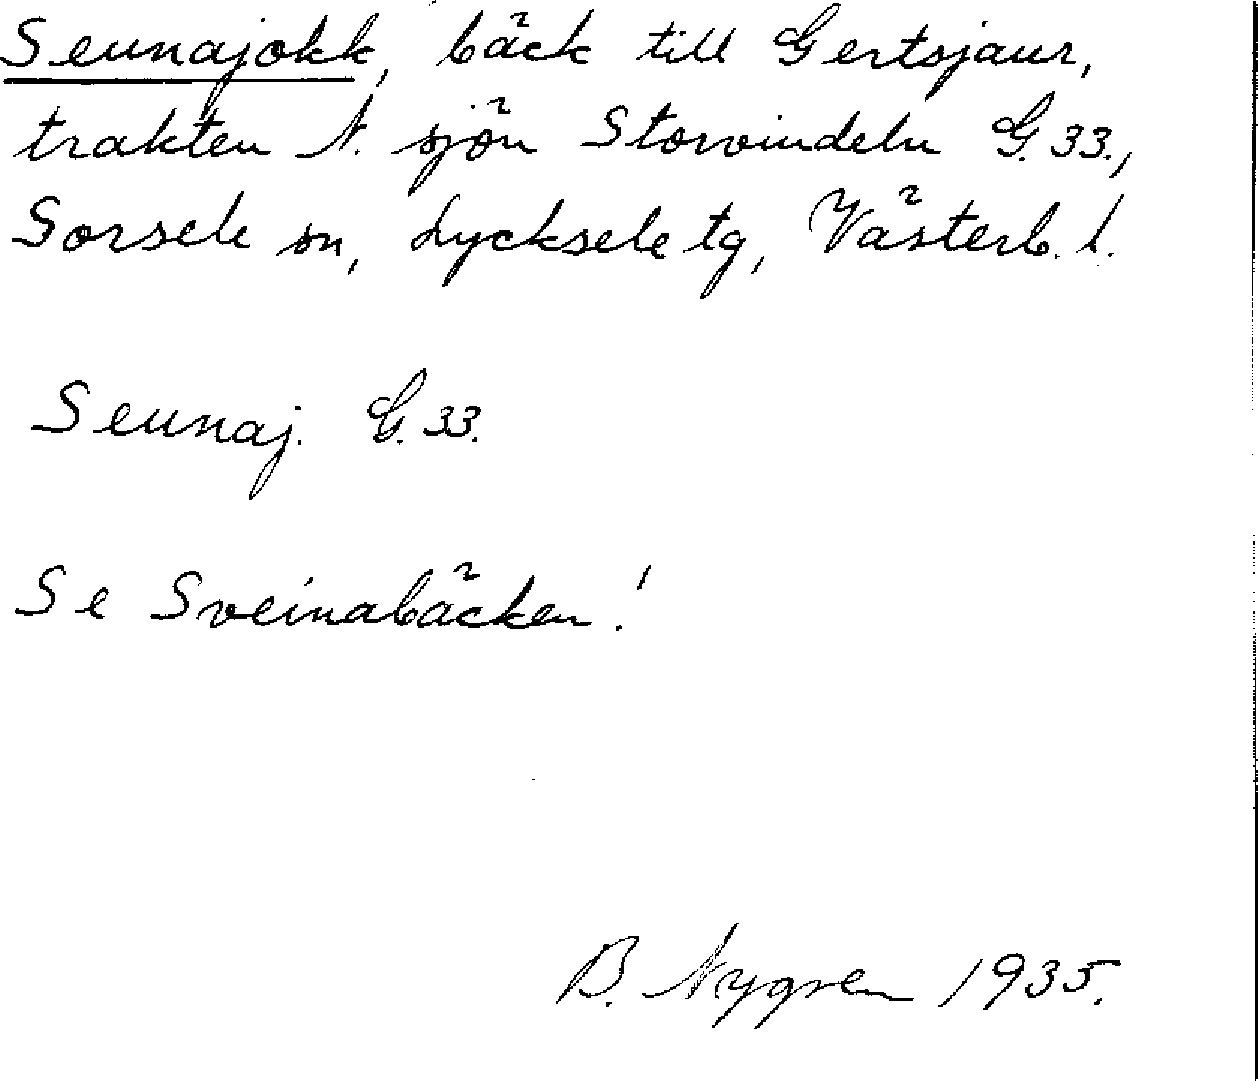 Seunajokk, bäck till Gertsjaur,
trakten N. sjön Storvindeln G. 33.,
Sorsele sn, Lycksele tg, Västerb. l.
Seunaj. G. 33.
Se Sveinabäcken!
B. Nygren 1935.